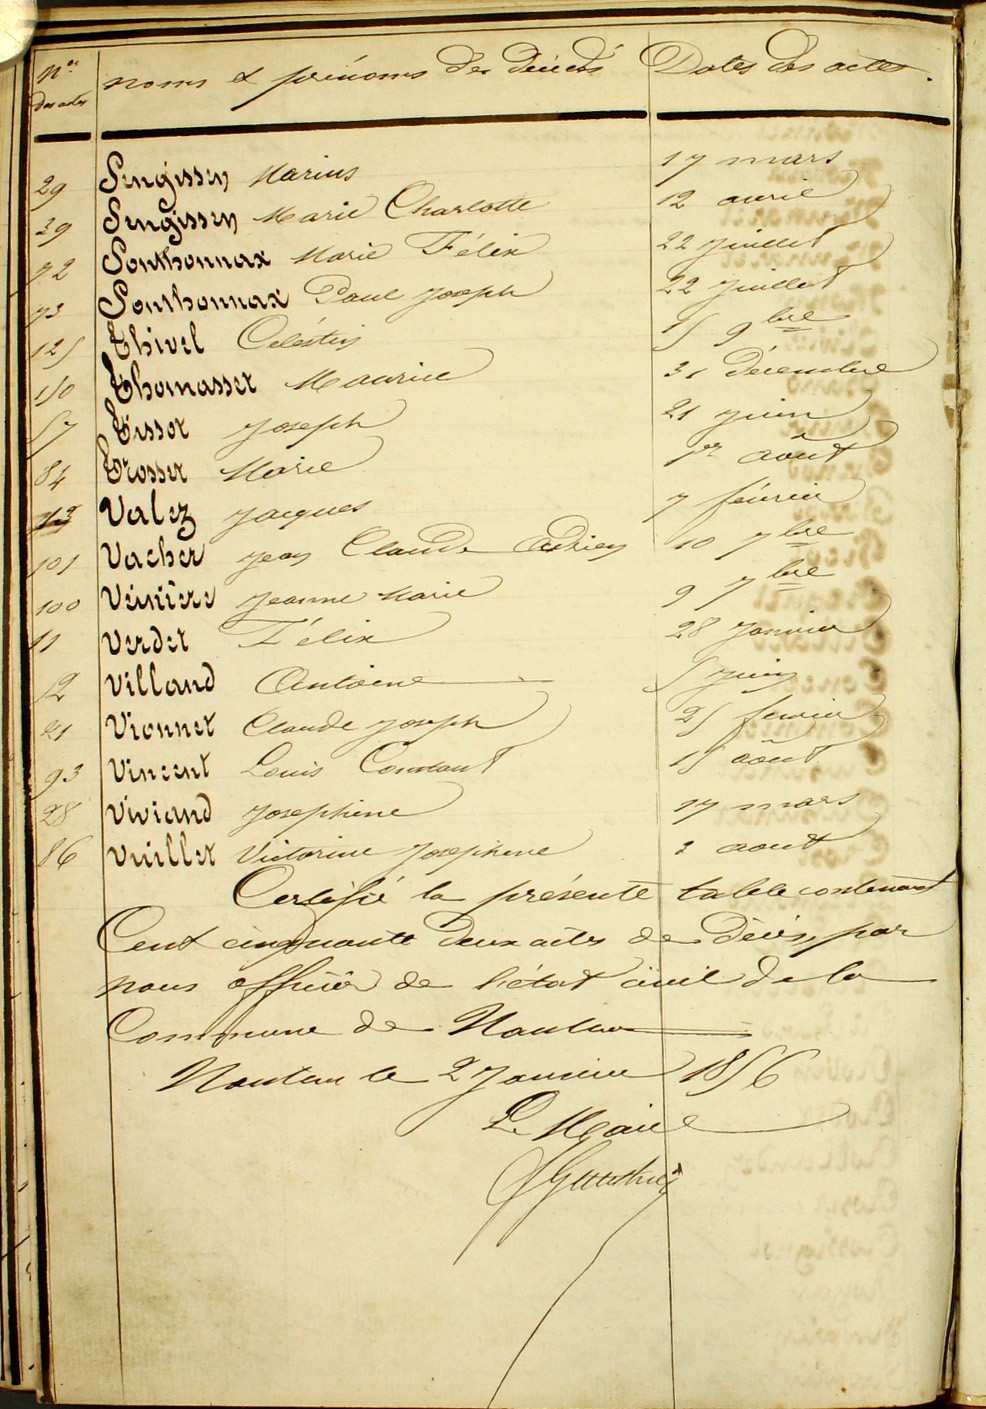 Nos des actes noms et prénoms des décédés Dates des actes.
29 Sengissen Marius 17 mars
39 Sengissen Marie Charlotte 12 avril
72 Sonthonnax Marie Félix 22 juillet
73 Sonthonnax Paul Joseph 22 juillet
125 Thivel Célestin 15 9bre
150 Thomasset Maurice 31 Décembre
57 Tissot Joseph 21 juin
84 Trosset Marie 1er août
13 Valez Jacques 7 février
101 Vacher Jean Claude Adrien 10 7bre
100 Vénière Jeanne Marie 9 7bre
11 Verdet Félix 28 Janvier
52 Villand Antoine 5 Juin
21 Vionnet Claude Joseph 25 février
93 Vincent Louis Constant 15 août
28 Viviand Josephine 17 mars
86 Vuillet Victorine Josephine 2 aout
Certifié la présente table contenant
Cent cinquante deux actes de décès, par
nous officier de l'état civil de la
Commune de Nantua
Nantua le 2 Janvier 1856
Le Maire